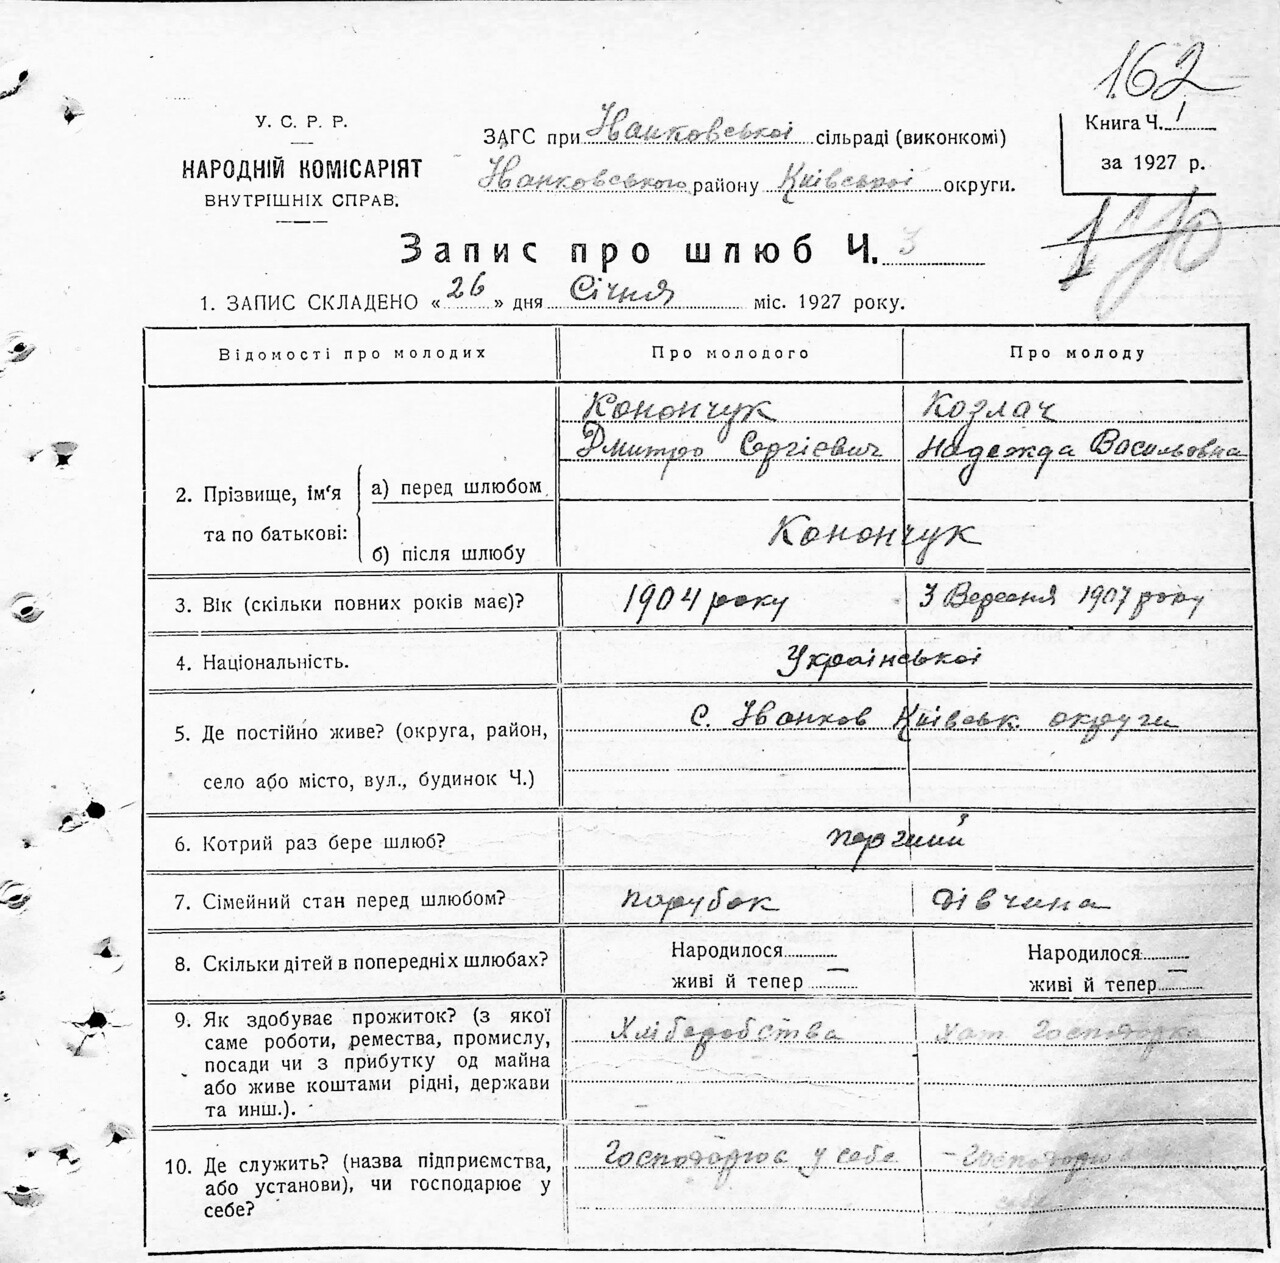 162
У. С. Р. Р.
НАРОДНІЙ КОМІСАРІЯТ
ВНУТРІШНІХ СПРАВ.
ЗАГС при Іванковської сільраді (виконкомі)
Іванковського району Київської округи.
Книга Ч. 1
за 1927 р.
Запис про шлюб Ч. 3
1. ЗАПИС СКЛАДЕНО «26» дня Січня міс. 1927 року.
Відомості про молодих Про молодого Про молоду
Конончук Козлач
Дмитро Сергієвич Надежда Васильовна
2. Прізвище, ім'я та по батькові:
а) перед шлюбом
б) після шлюбу
Конончук
3. Вік (скільки повних років має)? 1904 року 3 Вересня 1907 року
4. Національність. Української
5. Де постійно живе? (округа, район, с. Іванков Київськ округи
село або місто, вул., будинок Ч.)
6. Котрий раз бере шлюб? перший
7. Сімейний стан перед шлюбом? парубок дівчина
8. Скільки дітей в попередніх шлюбах? Народилося Народилося
живі й тепер — живі й тепер —
9. Як здобуває прожиток? (з якої Хліборобства хат господарка
саме роботи, ремества, промислу,
посади чи з прибутку од майна
або живе коштами рідні, держави
та инш.).
10. Де служить? (назва підприємства, Господарює у себе – Господарює
або установи), чи господарює у
себе?